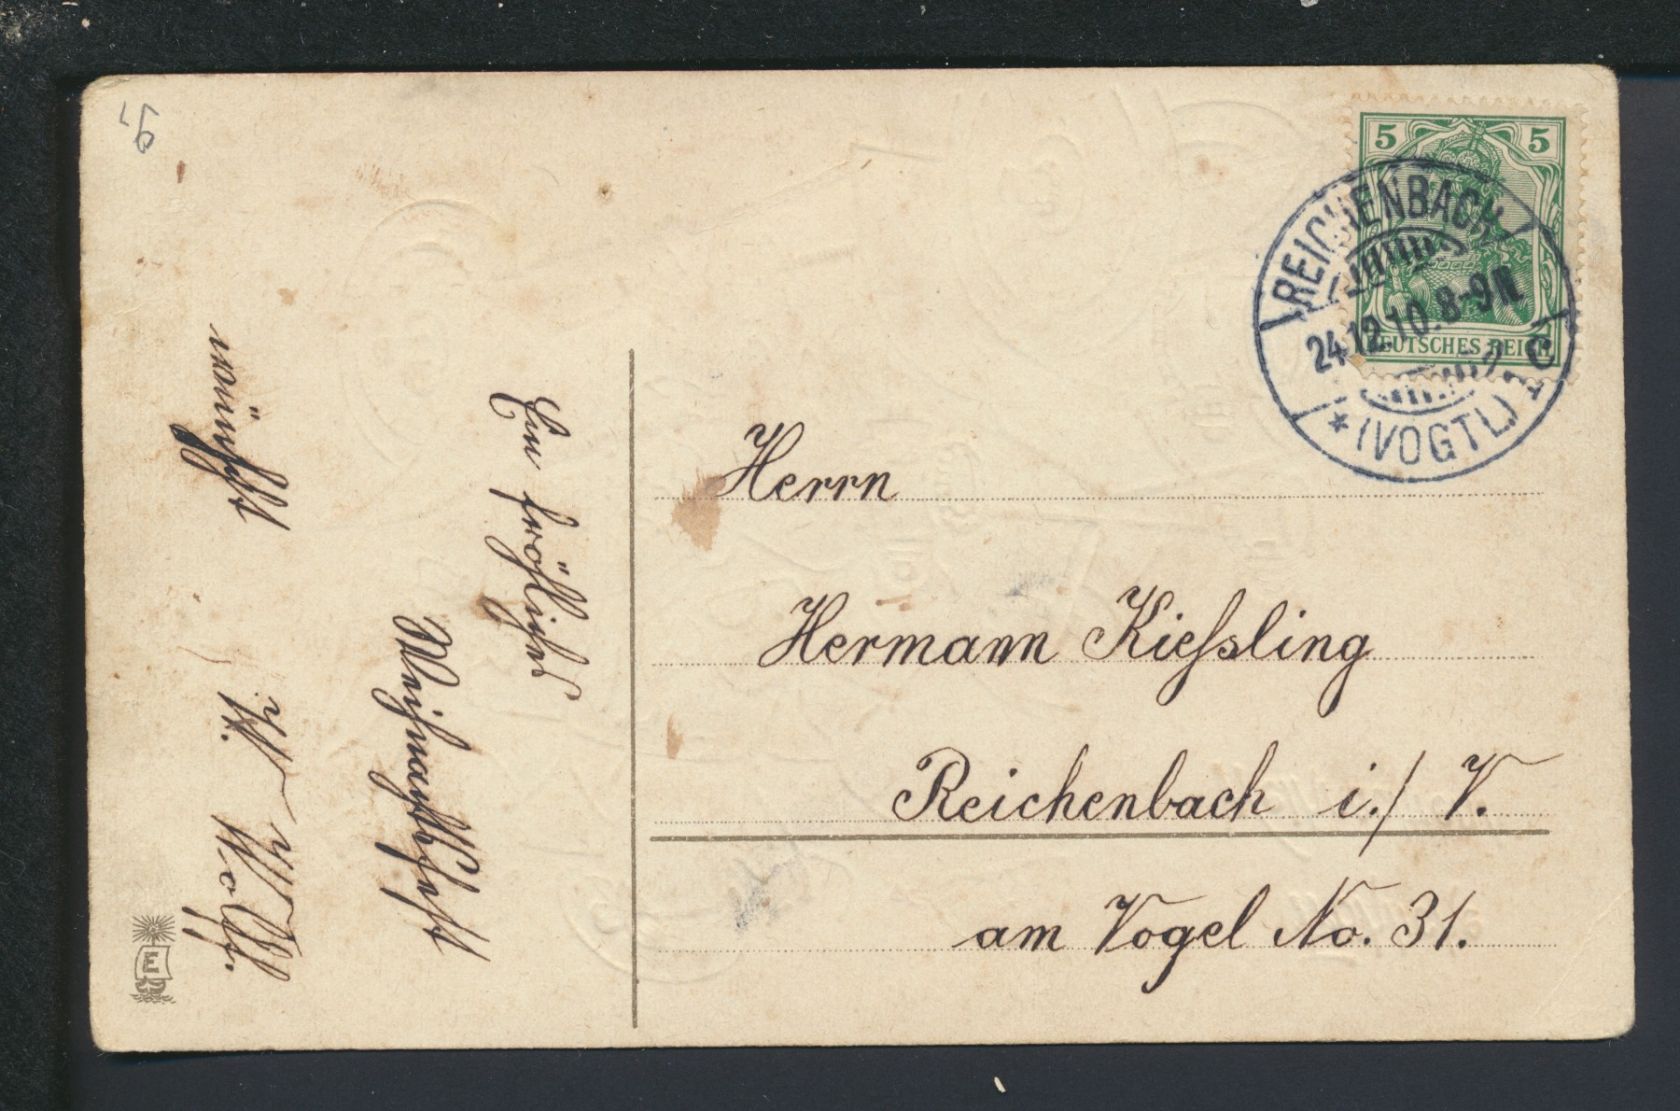 Ein fröhliches
Weihnachtsfest
wünscht
W. Wolff.
Herrn
Hermann Kieſsling
Reichenbach i./ V.
am Vogel No. 31.
5 5
DEUTSCHES REICH
REICHENBACH
24.12.10. 8-9 N
* (VOGTL) * C
E